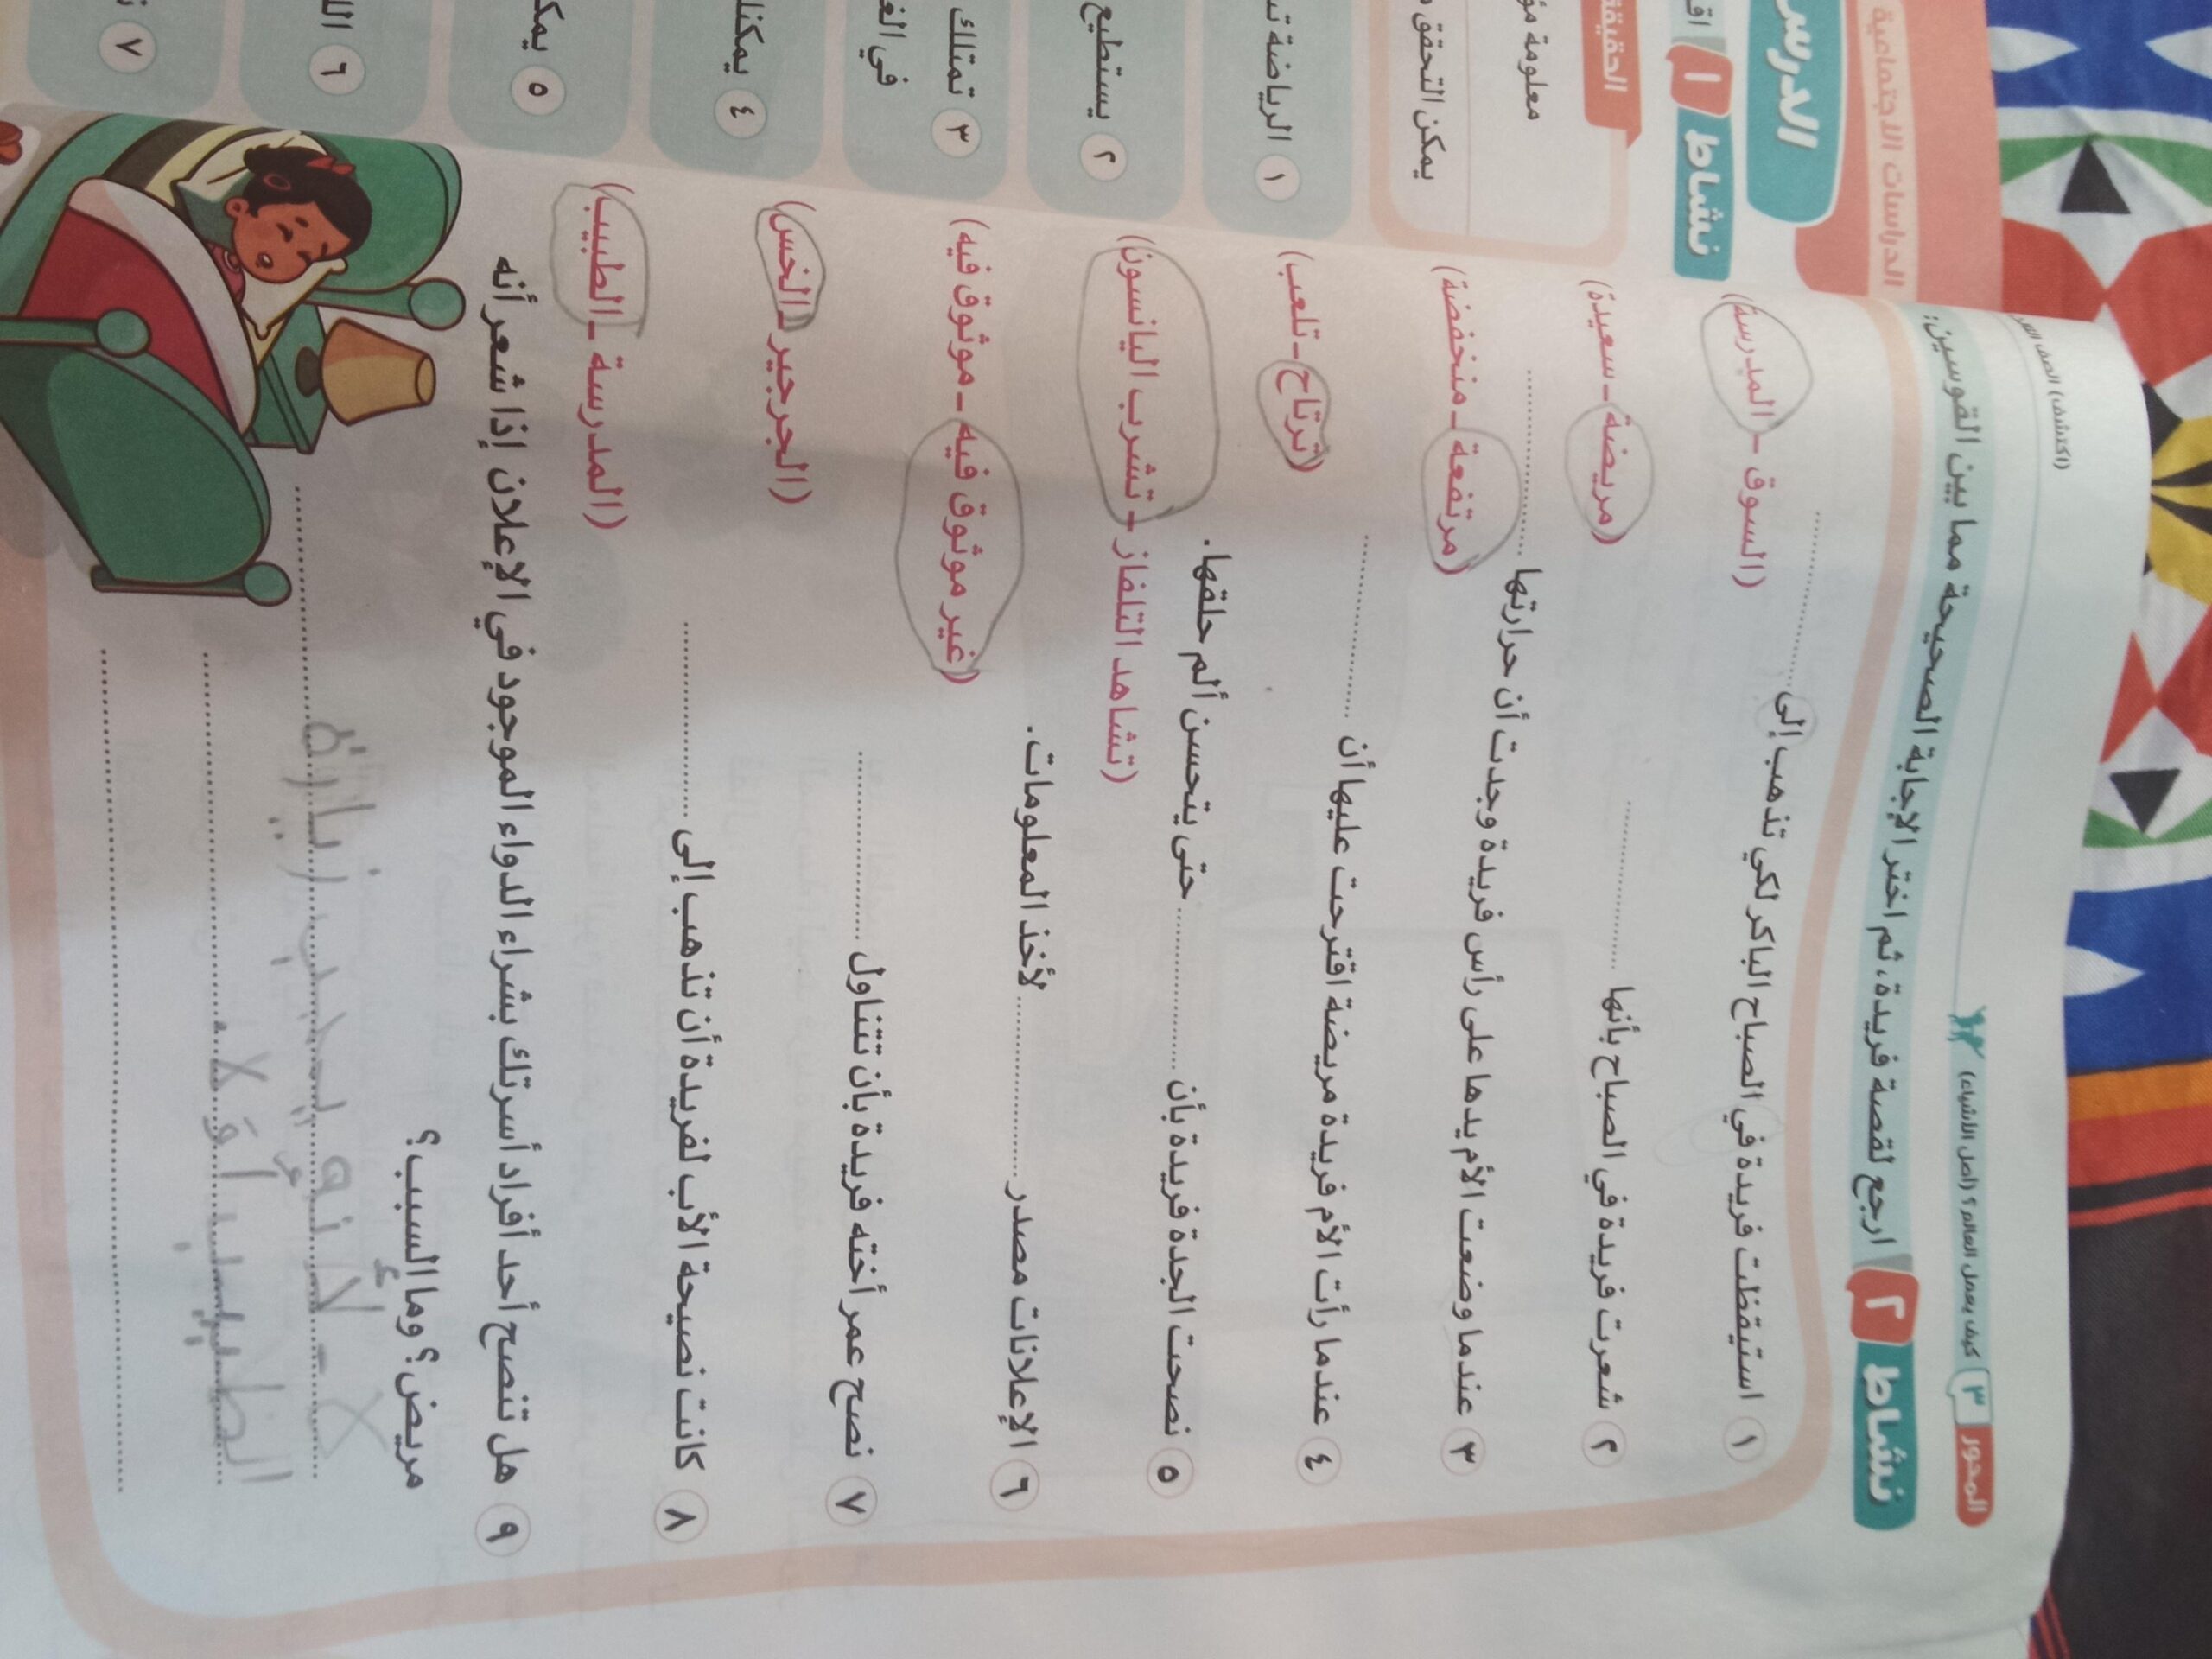 المحور ٣ كيف يعمل العالم؟ (أصل الأشياء)
(اكتشف) الصف
نشاط ٢ ارجع لقصة فريدة، ثم اختر الإجابة الصحيحة مما بين القوسين:
١ استيقظت فريدة في الصباح الباكر لكي تذهب إلى ............
(السوق - المدرسة)
٢ شعرت فريدة في الصباح بأنها ............
(مريضة - سعيدة)
٣ عندما وضعت الأم يدها على رأس فريدة وجدت أن حرارتها ............
(مرتفعة - منخفضة)
٤ عندما رأت الأم فريدة مريضة اقترحت عليها أن ............
(ترتاح - تلعب)
٥ نصحت الجدة فريدة بأن ............ حتى يتحسن ألم حلقها.
(تشاهد التلفاز - تشرب اليانسون)
٦ الإعلانات مصدر ............ لأخذ المعلومات.
(غير موثوق فيه - موثوق فيه)
٧ نصح عمر أخته فريدة بأن تتناول ............
(الجرجير - الخس)
٨ كانت نصيحة الأب لفريدة أن تذهب إلى ............
(المدرسة - الطبيب)
٩ هل تنصح أحد أفراد أسرتك بشراء الدواء الموجود في الإعلان إذا شعر أنه
مريض؟ وما السبب؟
لا - لأنه يجب زيارة
الطبيب أولا.
الدراسات الاجتماعية
الدرس
نشاط ١
الحقيقة
معلومة
يمكن التحقق
١ الرياضة
٢ يستطيع
٣ تمتلك
في
٤ يمكننا
٥
٦
٧